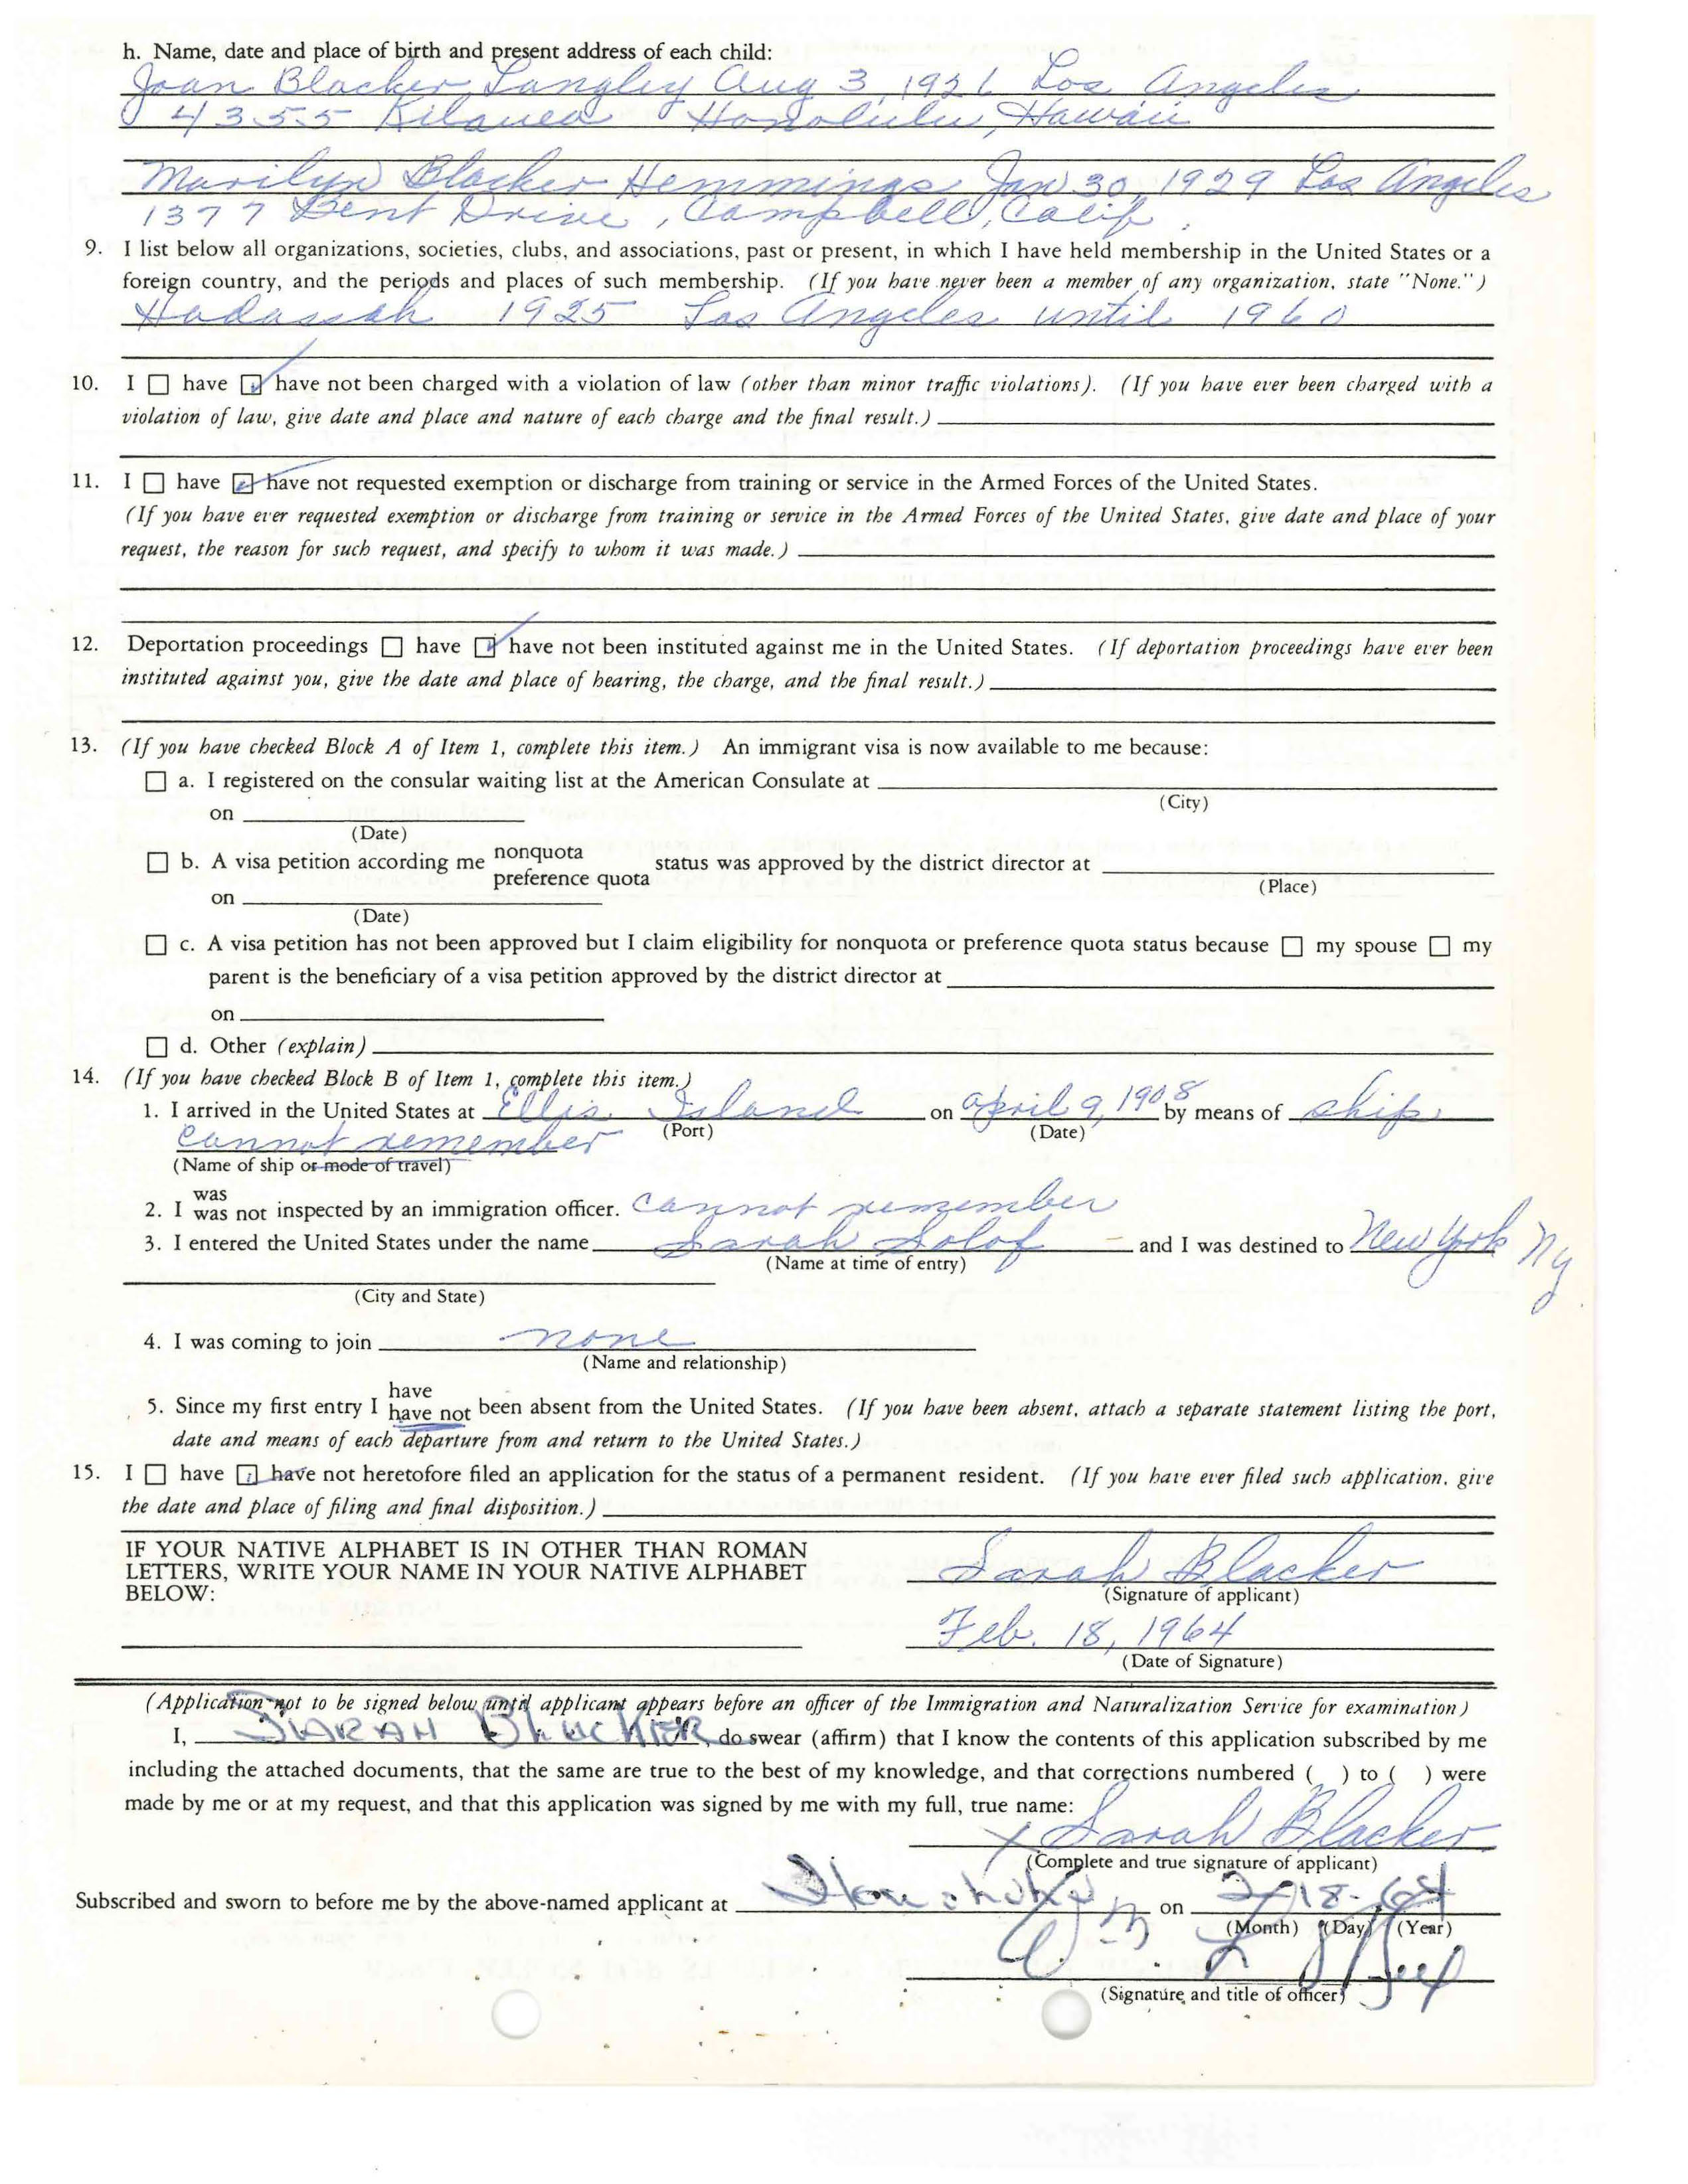 h. Name, date and place of birth and present address of each child:
Joan Blacker Langley Aug 3, 1921 Los Angeles
4355 Kilauea Honolulu, Hawaii
Marilyn Blacker Hemmings Jan 30, 1929 Los Angeles
1377 Bent Drive, Campbell, Calif.
9. I list below all organizations, societies, clubs, and associations, past or present, in which I have held membership in the United States or a
foreign country, and the periods and places of such membership. (If you have never been a member of any organization, state "None.")
Hadassah 1925 Los Angeles until 1960
10. I ☐ have ☑ have not been charged with a violation of law (other than minor traffic violations). (If you have ever been charged with a
violation of law, give date and place and nature of each charge and the final result.)
11. I ☐ have ☑ have not requested exemption or discharge from training or service in the Armed Forces of the United States.
(If you have ever requested exemption or discharge from training or service in the Armed Forces of the United States, give date and place of your
request, the reason for such request, and specify to whom it was made.)
12. Deportation proceedings ☐ have ☑ have not been instituted against me in the United States. (If deportation proceedings have ever been
instituted against you, give the date and place of hearing, the charge, and the final result.)
13. (If you have checked Block A of Item 1, complete this item.) An immigrant visa is now available to me because:
☐ a. I registered on the consular waiting list at the American Consulate at
(City)
on
(Date)
☐ b. A visa petition according me nonquota preference quota status was approved by the district director at
(Place)
on
(Date)
☐ c. A visa petition has not been approved but I claim eligibility for nonquota or preference quota status because ☐ my spouse ☐ my
parent is the beneficiary of a visa petition approved by the district director at
on
☐ d. Other (explain)
14. (If you have checked Block B of Item 1, complete this item.)
1. I arrived in the United States at Ellis Island on April 9, 1908 by means of ship
cannot remember (Port) (Date)
(Name of ship or mode of travel)
2. I was was not inspected by an immigration officer. cannot remember
3. I entered the United States under the name Sarah Solof and I was destined to New York NY
(Name at time of entry)
(City and State)
4. I was coming to join none
(Name and relationship)
5. Since my first entry I have have not been absent from the United States. (If you have been absent, attach a separate statement listing the port,
date and means of each departure from and return to the United States.)
15. I ☐ have ☑ have not heretofore filed an application for the status of a permanent resident. (If you have ever filed such application, give
the date and place of filing and final disposition.)
IF YOUR NATIVE ALPHABET IS IN OTHER THAN ROMAN
LETTERS, WRITE YOUR NAME IN YOUR NATIVE ALPHABET
BELOW:
Sarah Blacker
(Signature of applicant)
Feb. 18, 1964
(Date of Signature)
(Application not to be signed below until applicant appears before an officer of the Immigration and Naturalization Service for examination)
I, SARAH BLACKER, do swear (affirm) that I know the contents of this application subscribed by me
including the attached documents, that the same are true to the best of my knowledge, and that corrections numbered ( ) to ( ) were
made by me or at my request, and that this application was signed by me with my full, true name:
X Sarah Blacker
(Complete and true signature of applicant)
Subscribed and sworn to before me by the above-named applicant at on 2-18-64
(Month) (Day) (Year)
(Signature and title of officer)